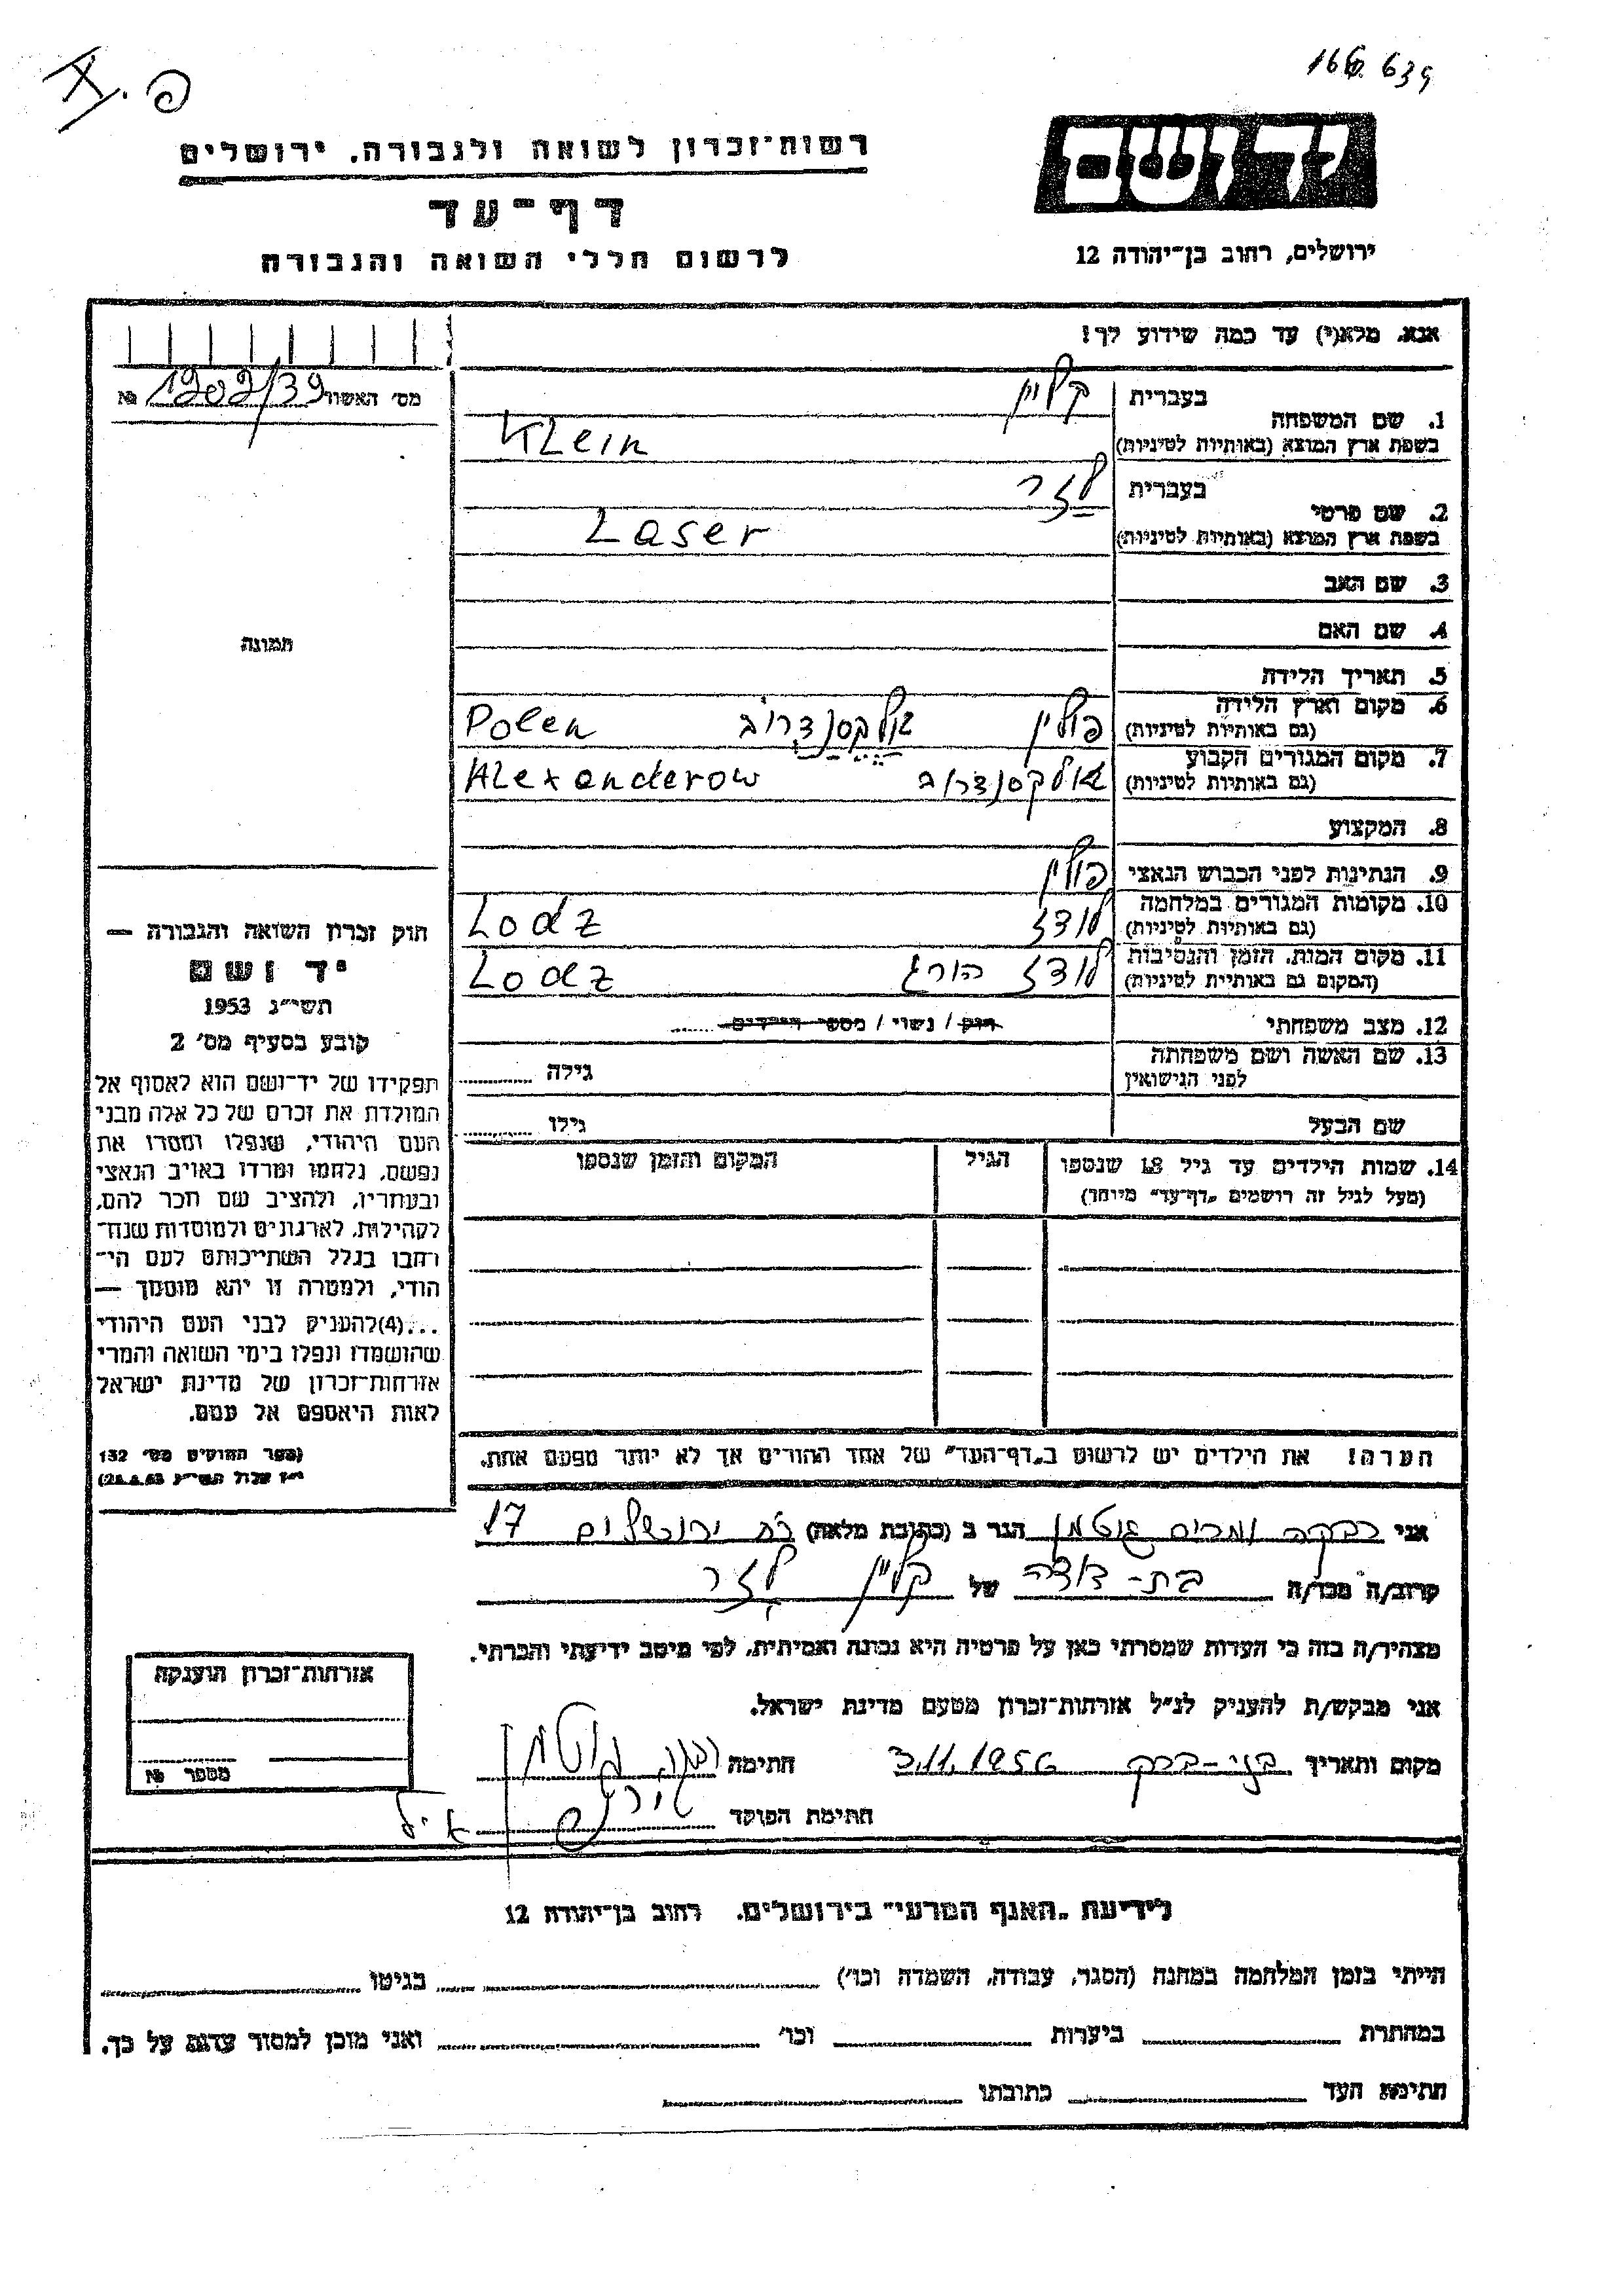 פ. א.
166. 639
יד ושם
רשות־זכרון לשואה ולגבורה, ירושלים
דף־עד
לרשום חללי השואה והגבורה
ירושלים, רחוב בן־יהודה 12
אנא, מלא(י) עד כמה שידוע לך!
מס' האשור 1202/39 №
1. שם המשפחה
בעברית קליין
בשפת ארץ המוצא (באותיות לטיניות) Klein
2. שם פרטי
בעברית לזר
בשפת ארץ המוצא (באותיות לטיניות) Laser
3. שם האב
4. שם האם
5. תאריך הלידה
6. מקום וארץ הלידה
(גם באותיות לטיניות) פולין אלקסנדרוב Polen
7. מקום המגורים הקבוע
(גם באותיות לטיניות) אלקסנדרוב Alexanderow
8. המקצוע
9. הנתינות לפני הכבוש הנאצי פולין
10. מקומות המגורים במלחמה
(גם באותיות לטיניות) לודז Lodz
11. מקום המות, הזמן והנסיבות
(המקום גם באותיות לטיניות) לודז הורג Lodz
12. מצב משפחתי רוק / נשוי / מספר הילדים
13. שם האשה ושם משפחתה
לפני הנישואין גילה
שם הבעל גילו
14. שמות הילדים עד גיל 18 שנספו הגיל המקום והזמן שנספו
(מעל לגיל זה רושמים „דף־עד" מיוחד)
הערה! את הילדים יש לרשום ב„דף־העד" של אחד ההורים אך לא יותר מפעם אחת.
תמונה
חוק זכרון השואה והגבורה —
יד ושם
תשי"ג 1953
קובע בסעיף מס' 2
תפקידו של יד־ושם הוא לאסוף אל
המולדת את זכרם של כל אלה מבני
העם היהודי, שנפלו ומסרו את
נפשם, נלחמו ומרדו באויב הנאצי
ובעוזריו, ולהציב שם וזכר להם,
לקהילות, לארגונים ולמוסדות שנח־
רבו בגלל השתייכותם לעם הי־
הודי, ולמטרה זו יהא מוסמך —
...(4) להעניק לבני העם היהודי
שהושמדו ונפלו בימי השואה והמרי
אזרחות־זכרון של מדינת ישראל
לאות היאספם אל עמם.
(ספר החוקים מס' 132
י"ז אלול תשי"ג 28.8.53)
אני רבקה ומרים גוטמן הגר ב (כתובת מלאה) רח ירושלים 17
קרוב/ה מכר/ה בת-דודה של קליין לזר
מצהיר/ה בזה כי העדות שמסרתי כאן על פרטיה היא נכונה ואמיתית, לפי מיטב ידיעתי והכרתי.
אני מבקש/ת להעניק לנ"ל אזרחות־זכרון מטעם מדינת ישראל.
מקום ותאריך בני-ברק 3.11.1956 חתימה רבקה גוטמן
חתימת הפוקד
אזרחות־זכרון הוענקה
מספר №
לידיעת „האגף המדעי" בירושלים, רחוב בן־יהודה 12
הייתי בזמן המלחמה במחנה (הסגר, עבודה, השמדה וכו') בגיטו
במחתרת ביערות וכו' ואני מוכן למסור עדות על כך.
חתימת העד כתובתו